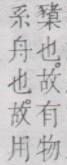 也。故有物
系舟也。故用